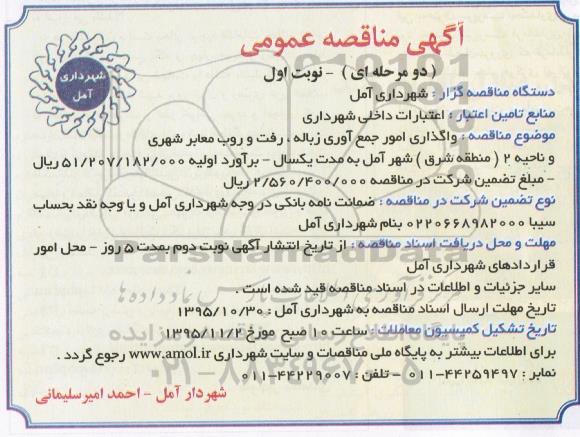 آگهی مناقصه عمومی
( دو مرحله ای ) - نوبت اول
شهرداری
آمل
دستگاه مناقصه گزار : شهرداری آمل
منابع تامین اعتبار : اعتبارات داخلی شهرداری
موضوع مناقصه : واگذاری امور جمع آوری زباله ، رفت و روب معابر شهری
و ناحیه ۲ ( منطقه شرق ) شهر آمل به مدت یکسال - برآورد اولیه ۵۱/۲۰۷/۱۸۲/۰۰۰ ریال
- مبلغ تضمین شرکت در مناقصه ۲/۵۶۰/۴۰۰/۰۰۰ ریال
نوع تضمین شرکت در مناقصه : ضمانت نامه بانکی در وجه شهرداری آمل و یا وجه نقد بحساب
سیبا ۰۲۲۰۶۶۸۹۸۲۰۰۰ بنام شهرداری آمل
مهلت و محل دریافت اسناد مناقصه : از تاریخ انتشار آگهی نوبت دوم بمدت ۵ روز - محل امور
قراردادهای شهرداری آمل
سایر جزئیات و اطلاعات در اسناد مناقصه قید شده است .
تاریخ مهلت ارسال اسناد مناقصه به شهرداری آمل : ۱۳۹۵/۱۰/۳۰
تاریخ تشکیل کمیسیون معاملات : ساعت ۱۰ صبح مورخ ۱۳۹۵/۱۱/۲
برای اطلاعات بیشتر به پایگاه ملی مناقصات و سایت شهرداری www.amol.ir رجوع گردد .
نمابر : ۴۴۲۵۹۴۹۷-۰۱۱ - تلفن : ۴۴۲۲۹۰۰۷-۰۱۱
شهردار آمل - احمد امیرسلیمانی
ParsNamadData